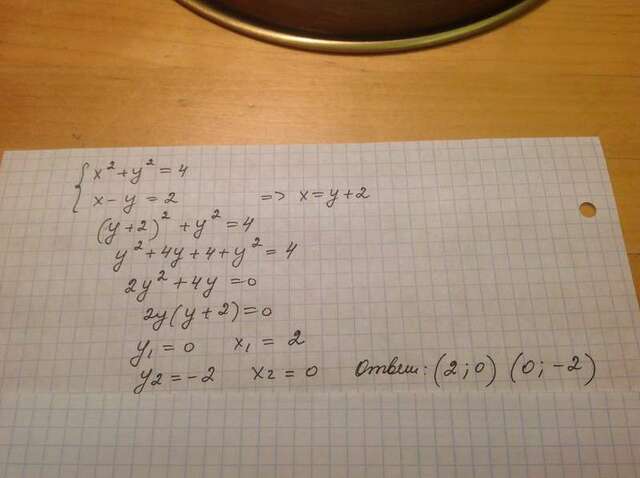 x² + y² = 4
x - y = 2 => x = y + 2
(y + 2)² + y² = 4
y² + 4y + 4 + y² = 4
2y² + 4y = 0
2y(y + 2) = 0
y₁ = 0 x₁ = 2
y₂ = -2 x₂ = 0 Ответ: (2; 0) (0; -2)